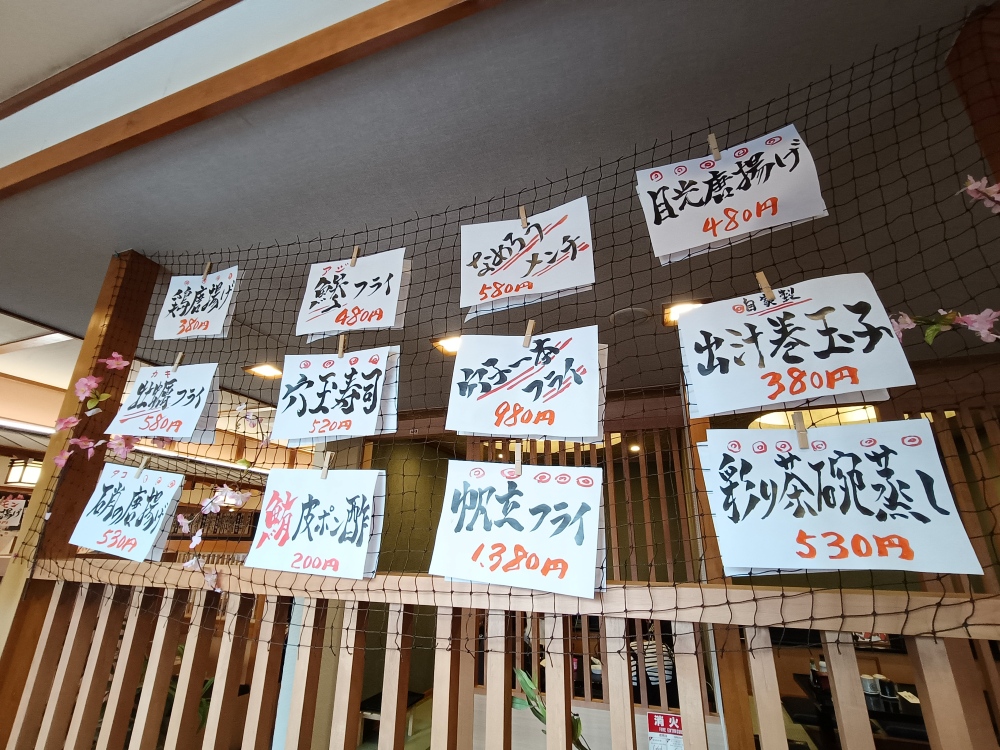 目光唐揚げ
480円
なめろう
メンチ
580円
アジ
鯵フライ
480円
鶏唐揚げ
380円
自家製
出汁巻玉子
380円
穴子一本
フライ
980円
穴玉寿司
520円
カキ
牡蠣フライ
580円
彩り茶碗蒸し
530円
帆立フライ
1.380円
鮪皮ポン酢
200円
タコ
石蛸の唐揚げ
530円
消火